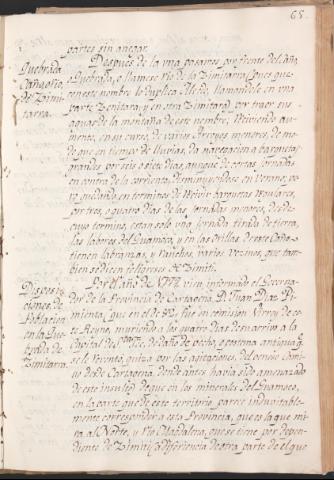 65.
partes sin anegar.
Quebrada
Caño, ó Rio,
de Zimi-
tarra.
Despues de la una pasamos por frente del Caño,
ó Quebrada, ó llamese Rio de la Zimitarra (pues que
con este nombre lo duplica Alcedo, llamandole en una
parte Zenitara, y en otra Zimitara) por traer sus
aguas de la montaña de este nombre, recibiendo au-
mento, en su curso, de varios Arroyos menores, de mo-
do que en tiempo de lluvias, dá navegacion a barquetas
grandes por seis o siete dias, aunque de cortas jornadas
en contra de la corriente, disminuyendose en verano, pe-
ro quedando en terminos de recivir barquetas regulares,
por tres, o quatro dias de las jornadas menores, desde
cuyo termino, estan solo una jornada tirada de tierra,
las labores del Guamoco, y en las orillas de este Caño
tienen labranzas, y ranchos, varios vecinos, que tam-
bien se dicen feligreses de Zimiti.
Disposi-
ciones de
Poblacion
en la Que-
brada de
Zimitarra.
Por el año de 1772 vien informado el Governa-
dor de la Provincia de Cartagena D. Juan Diaz Pi-
mienta, que en el de 82, fue en comision Virrey de es-
te Reyno, muriendo a los quatro dias de su arrivo a la
Capital de
se le reventó, quiza por las agitaciones, del penoso cami-
no desde Cartagena, donde antes havia sido amenazado
de este insulto de que en los minerales del Guamoco,
en la parte que de este territorio parece indubitable-
mente corresponder a esta Provincia, que es la que mi-
ra al Norte, y Rio Magdalena, que se tiene por depen-
diente de Zimiti, a diferiencia de otra parte de el que